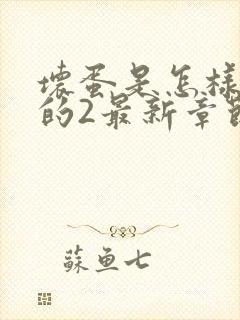 壞蛋是怎樣
的2最新章節
蘇魚七